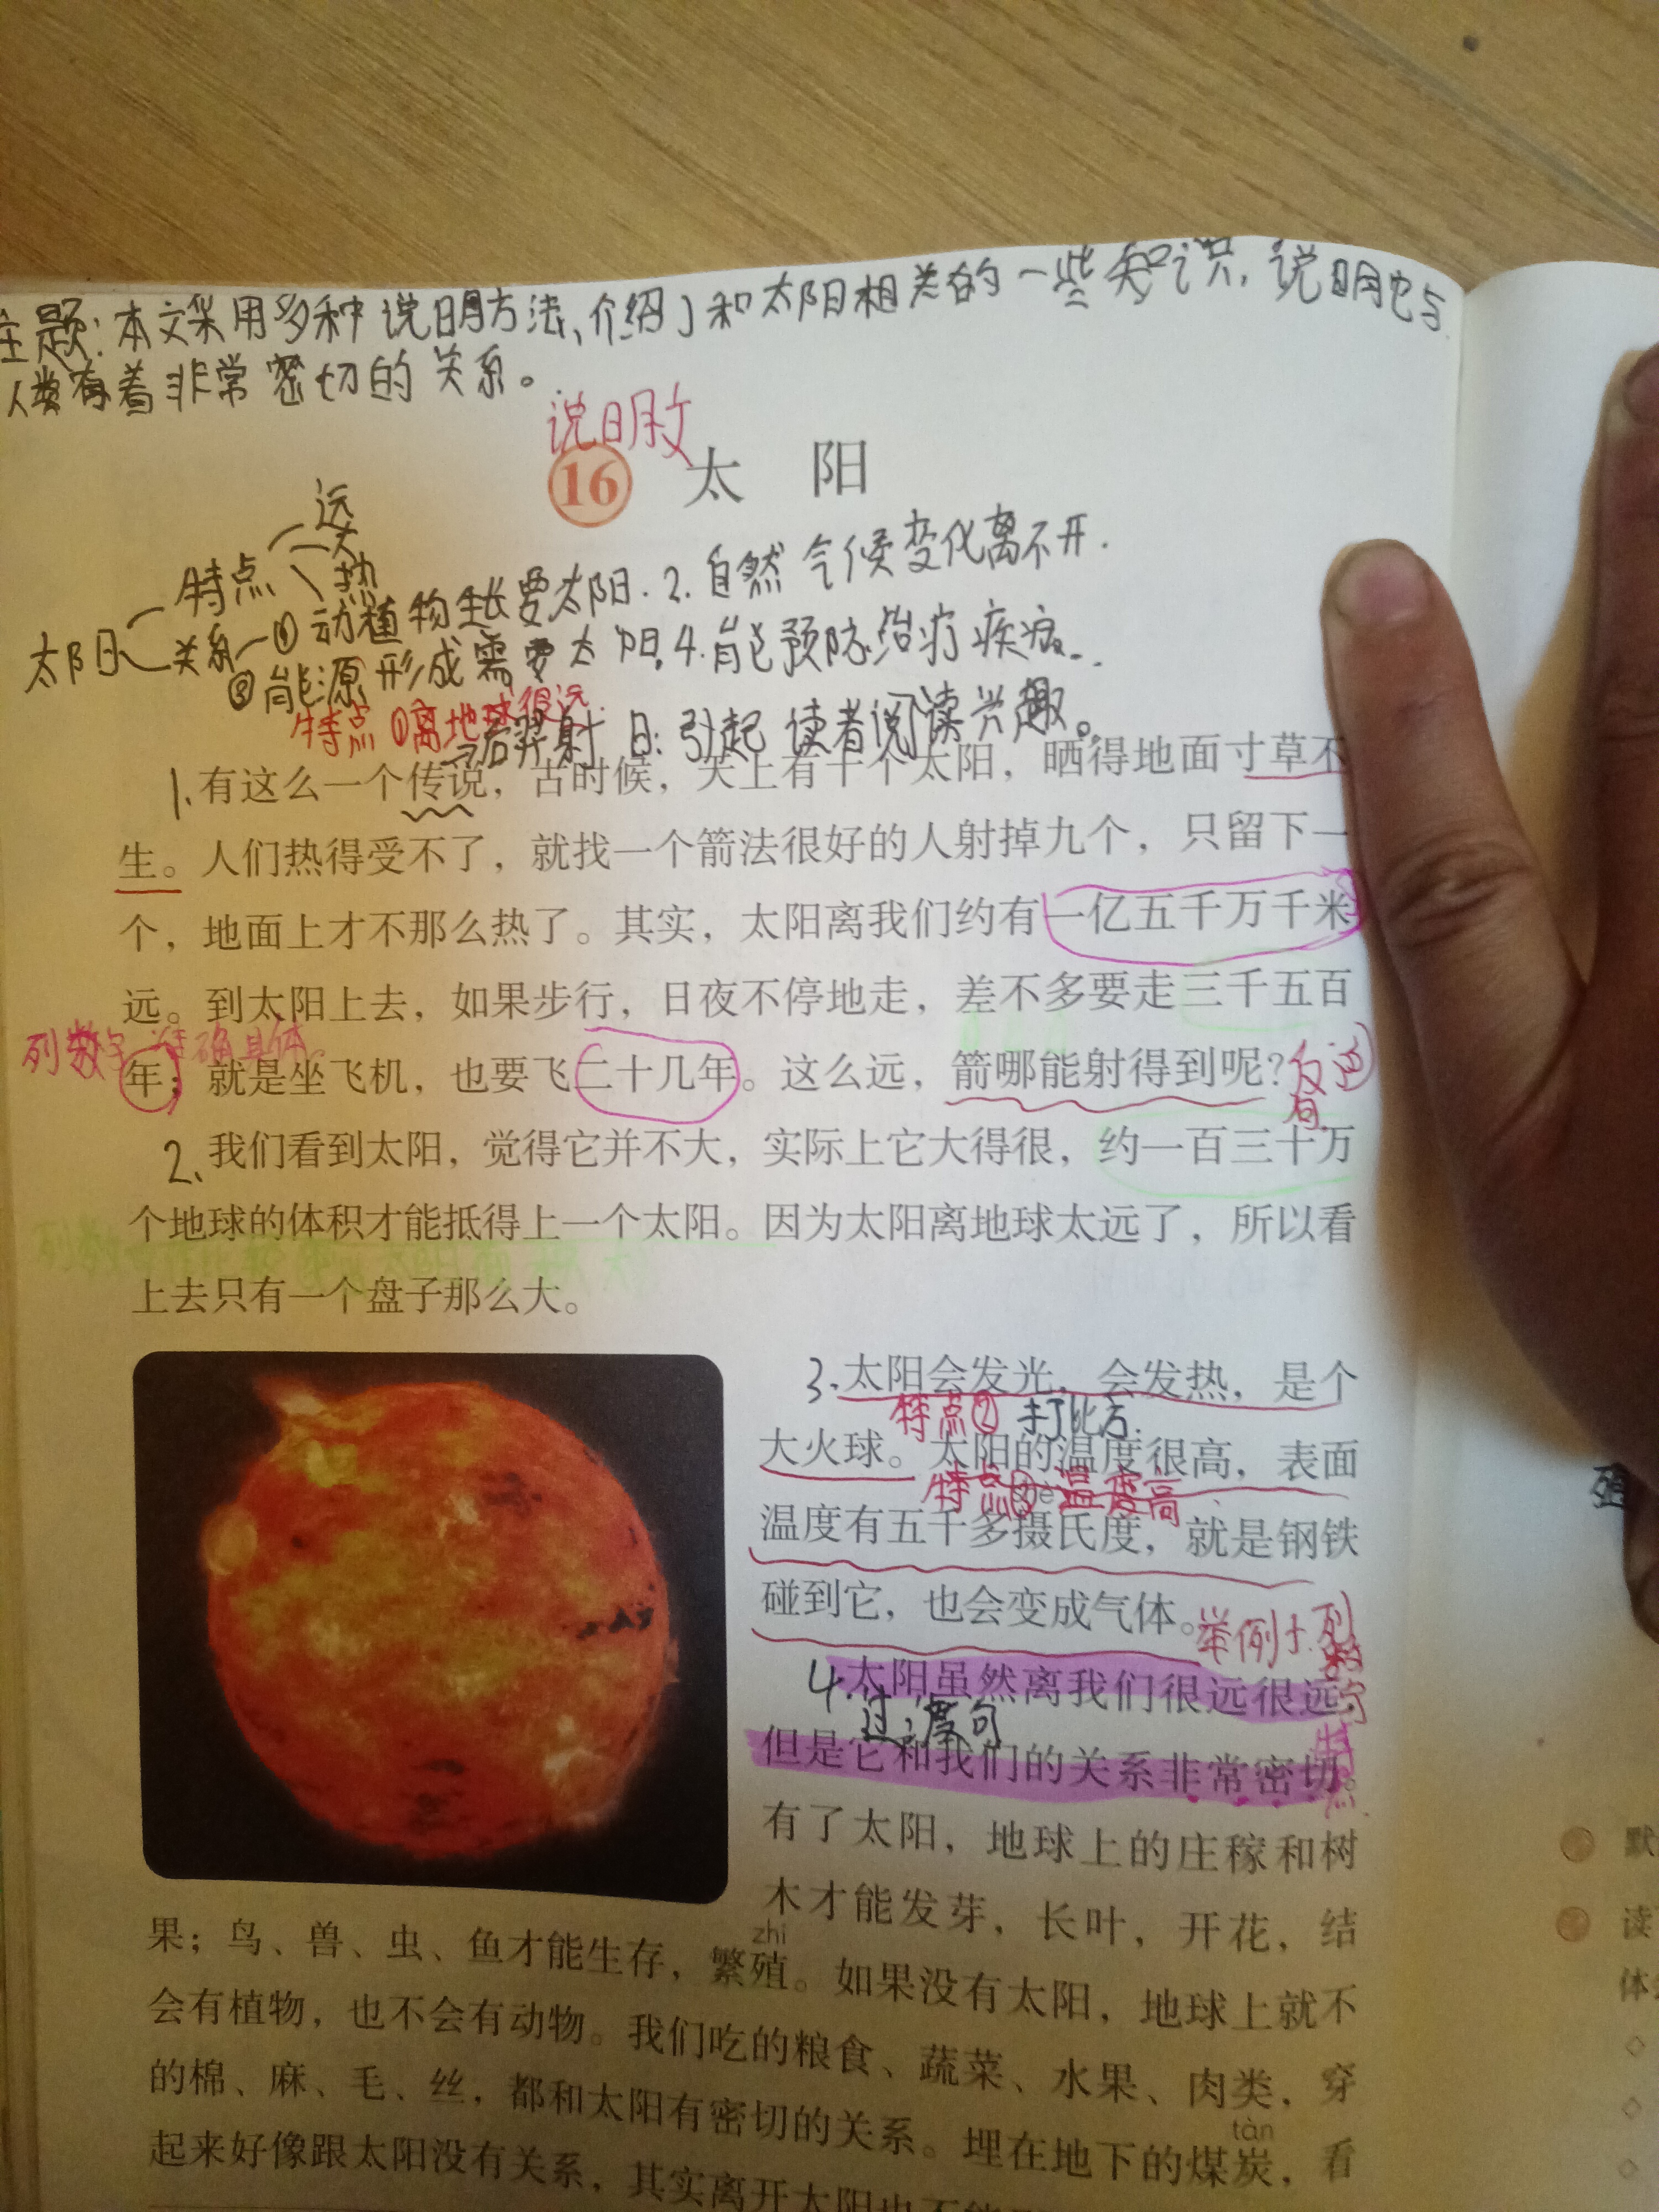 主题:本文采用多种说明方法、介绍了和太阳相关的一些知识,说明它与
人类有着非常密切的关系。
说明文
16 太阳
远
大
特点 热
太阳 关系 ①动植物生长要太阳.2.自然气候变化离不开.
③能源形成需要太阳.4.能预防治疗疾病..
特点①离地球很远
后羿射日:引起读者阅读兴趣。
1.有这么一个传说,古时候,天上有十个太阳,晒得地面寸草不
生。人们热得受不了,就找一个箭法很好的人射掉九个,只留下一
个,地面上才不那么热了。其实,太阳离我们约有一亿五千万千米
远。到太阳上去,如果步行,日夜不停地走,差不多要走三千五百
列数字 准确具体
年;就是坐飞机,也要飞二十几年。这么远,箭哪能射得到呢?
反问句
2、我们看到太阳,觉得它并不大,实际上它大得很,约一百三十万
个地球的体积才能抵得上一个太阳。因为太阳离地球太远了,所以看
上去只有一个盘子那么大。
3.太阳会发光,会发热,是个
特点② 打比方.
大火球。太阳的温度很高,表面
特点③温度高
温度有五千多摄氏度,就是钢铁
碰到它,也会变成气体。
举例子.列数字
4.太阳虽然离我们很远很远,
过渡句
但是它和我们的关系非常密切。
有了太阳,地球上的庄稼和树
木才能发芽,长叶,开花,结
zhí
果;鸟、兽、虫、鱼才能生存,繁殖。如果没有太阳,地球上就不
会有植物,也不会有动物。我们吃的粮食、蔬菜、水果、肉类,穿
的棉、麻、毛、丝,都和太阳有密切的关系。埋在地下的煤炭,看
tàn
起来好像跟太阳没有关系,其实离开太阳也不能
默
读
体